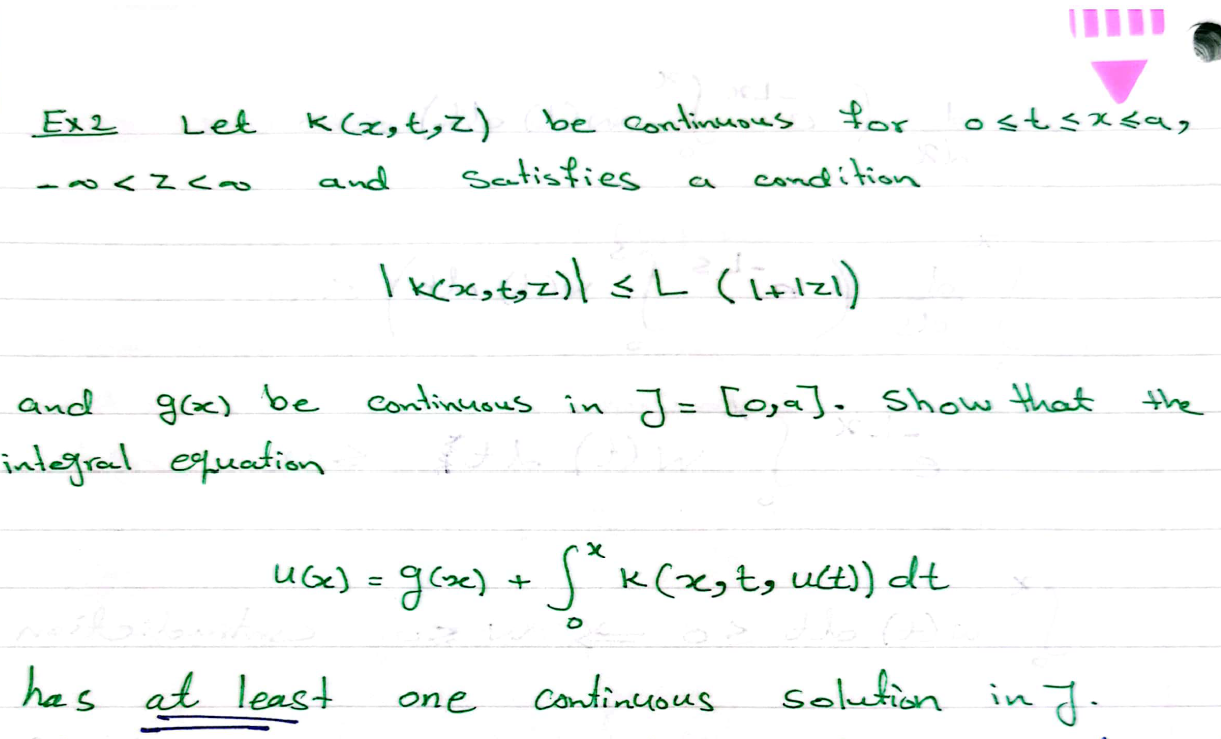 Ex2 Let k(x,t,z) be continuous for 0≤t≤x≤a,
-∞<z<∞ and satisfies a condition
|k(x,t,z)| ≤ L (1+|z|)
and g(x) be continuous in J = [0,a]. Show that the
integral equation
u(x) = g(x) + ∫₀ˣ k(x,t,u(t)) dt
has at least one continuous solution in J.